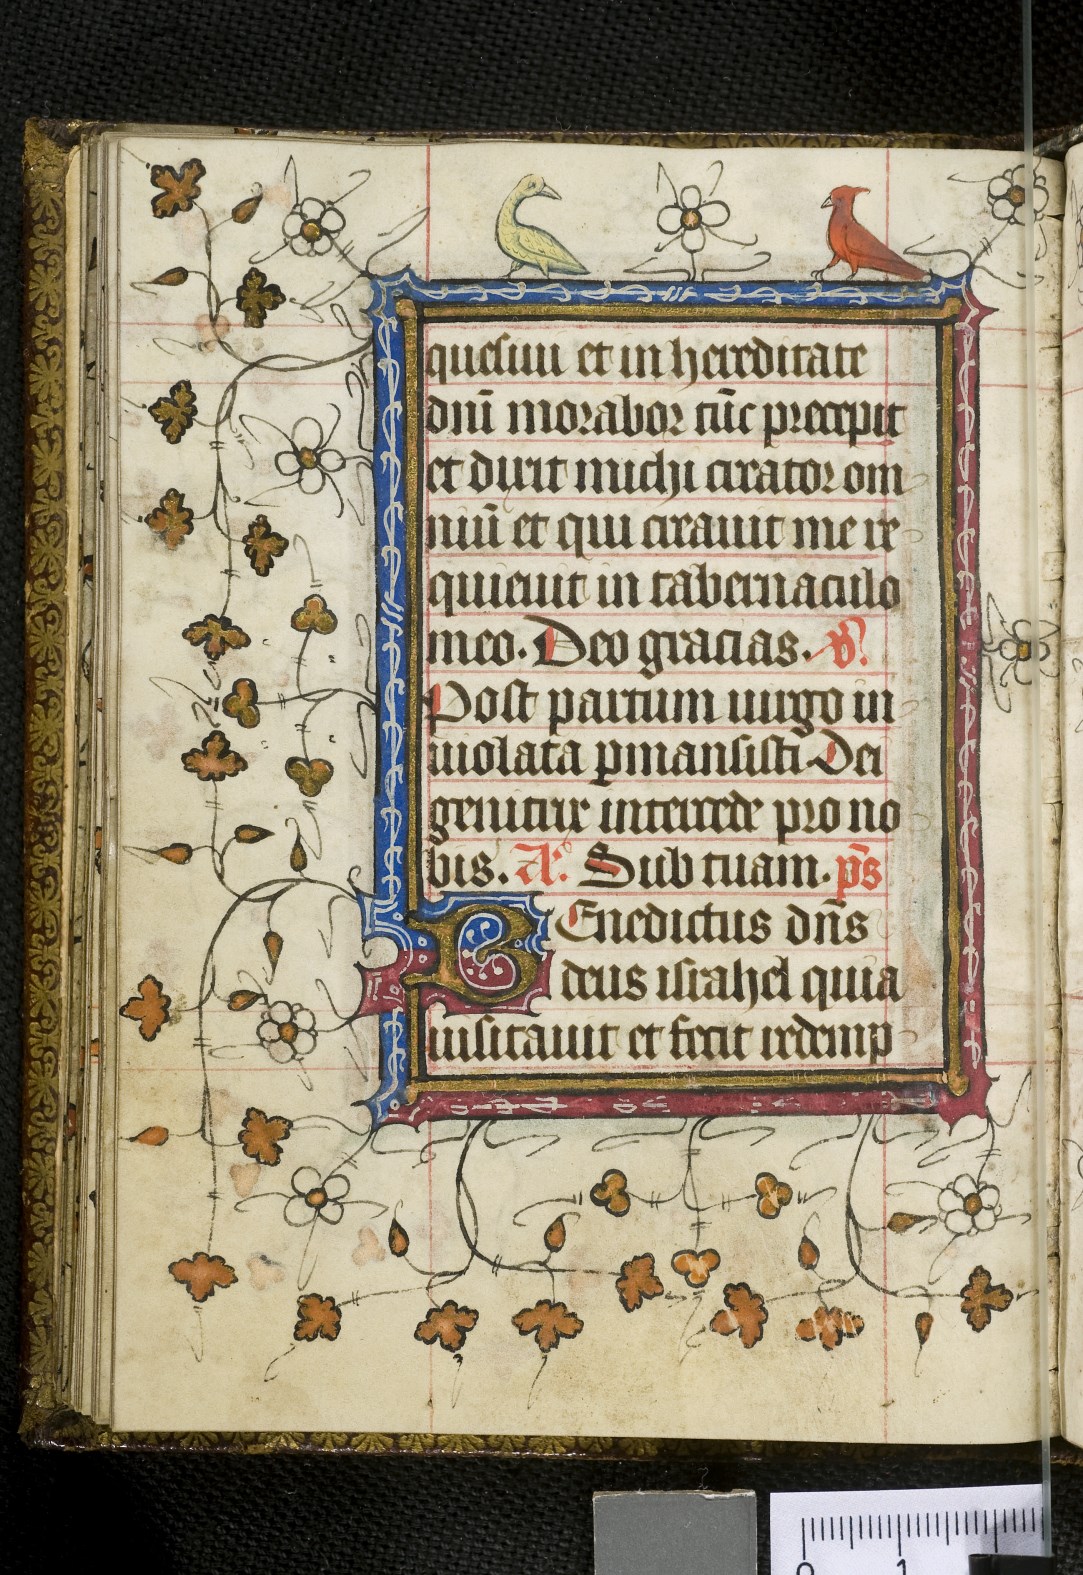 quesiui et in hereditate
dn̄i morabor tūc precepit
et dixit michi creator om
niū et qui creauit me re
quieuit in tabernaculo
meo. Deo gracias. v̄.
Post partum uirgo in
uiolata pmansisti Dei
genitrix intercede pro no
bis. A: Sub tuam. p̄s
BEnedictus dn̄s
deus israhel quia
uisitauit et fecit redemp
0 1